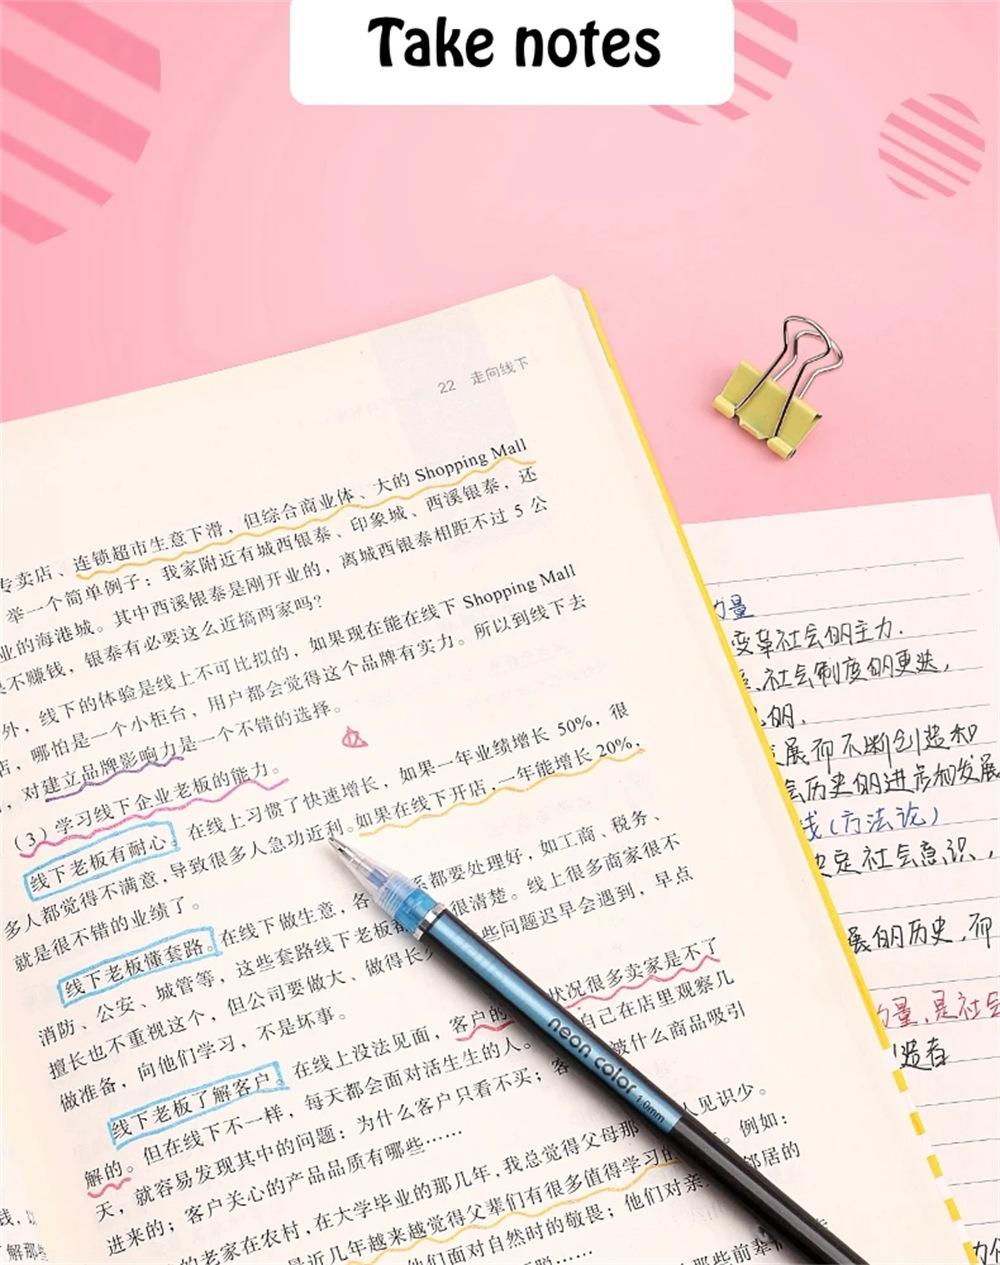 Take notes
22 走向线下
专卖店、连锁超市生意下滑，但综合商业体、大的 Shopping Mall
举一个简单例子：我家附近有城西银泰、印象城、西溪银泰，还
业的海港城。其中西溪银泰是刚开业的，离城西银泰相距不过 5 公
不赚钱，银泰有必要这么近搞两家吗？
外，线下的体验是线上不可比拟的，如果现在能在线下 Shopping Mall
店，哪怕是一个小柜台，用户都会觉得这个品牌有实力。所以到线下去
，对建立品牌影响力是一个不错的选择。
（3）学习线下企业老板的能力。
线下老板有耐心。在线上习惯了快速增长，如果一年业绩增长 50%，很
多人都觉得不满意，导致很多人急功近利。如果在线下开店，一年能增长 20%，
就是很不错的业绩了。
线下老板懂套路。在线下做生意，各 系都要处理好，如工商、税务、
消防、公安、城管等，这些套路线下老板都 很清楚。线上很多商家很不
擅长也不重视这个，但公司要做大、做得长 些问题迟早会遇到，早点
做准备，向他们学习，不是坏事。
线下老板了解客户。在线上没法见面，客户的 状况很多卖家是不了
解的。但在线下不一样，每天都会面对活生生的人。 自己在店里观察几
天，就容易发现其中的问题：为什么客户只看不买；客 被什么商品吸引
进来的；客户关心的产品品质有哪些……
的老家在农村，在大学毕业的那几年，我总觉得父母那 人见识少。
是近几年越来越觉得父辈们有很多值得学习的 。例如：
他们面对自然时的敬畏；他们对亲 邻居的
那些前辈们
neon color 1.0mm
力量
变革社会的主力.
社会制度的更迭,
的.
发展而不断创造和
会历史的进步和发展
线(方法论)
决定社会意识,
展的历史,而
力量,是社会
造者